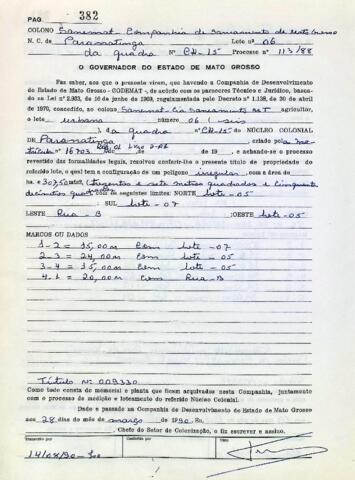 PAG 382
COLONO Sanemat - Companhia de Saneamento de Mato Grosso
N. C. de Paranatinga Lote nº 06
da quadra nº CH-15 Processo nº 113/88
O GOVERNADOR DO ESTADO DE MATO GROSSO
Faz saber, aos que o presente virem, que havendo a Companhia de Desenvolvimento
do Estado de Mato Grosso - CODEMAT -, de acôrdo com os pareceres Técnico e Jurídico, baseada
na Lei nº 2.983, de 16 de junho de 1969, regulamentada pelo Decreto nº 1.138, de 30 de abril
de 1970, concedido, ao colono Sanemat - Cia Saneamento MT agricultor,
o lote urbano número 06 (seis
) da quadra nº CH-15 DO NÚCLEO COLONIAL
DE Paranatinga criado pela ma-
tricula nº 16703 de 19 , e achando-se o processo
revestido das formalidades legais, resolveu conferir-lhe o presente título de propriedade do
referido lote, o qual tem a configuração de um polígono irregular, com a área de
ha. e 307,50 m² (trezentos e sete metros quadrados e cinquenta
decimetros quadrados com os seguintes limites: NORTE lote - 05
: SUL lote - 07
LESTE Rua - B :OESTE lote - 05
MARCOS OU DADOS
1 - 2 = 15,00 m com lote - 07
2 - 3 = 24,00 m com lote - 05
3 - 4 = 15,00 m com lote - 05
4 - 1 = 20,00 m com Rua - B
Título Nº 009330
Como tudo consta do memorial e planta que ficam arquivados nesta Companhia, juntamente
com o processo de medição e loteamento do referido Núcleo Colonial.
Dado e passado na Companhia de Desenvolvimento do Estado de Mato Grosso
aos 28 dias do mês de março de 1990. Eu,
, Chefe do Setor de Colonização, o fiz escrever e assino.
Transcrito por Conferido por Visto